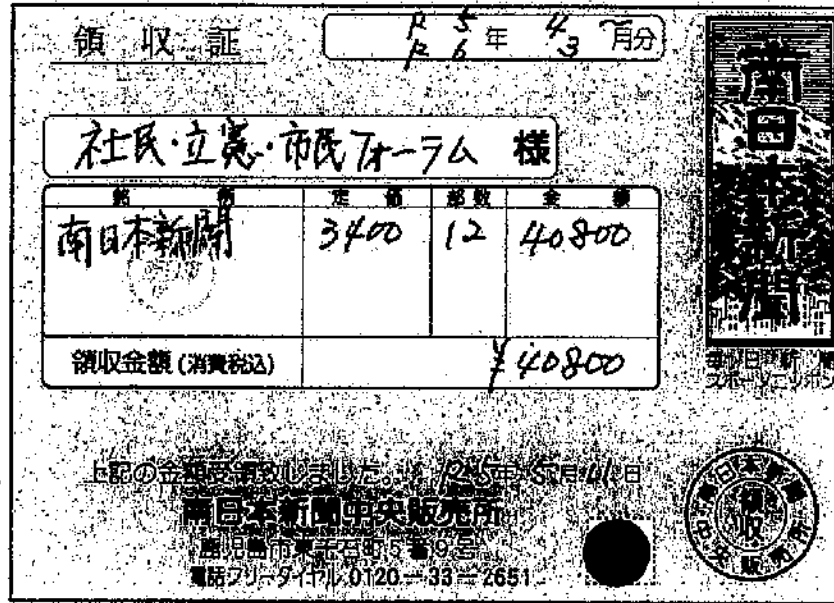 領収証
R5年4〜
R6 3月分
社民・立憲・市民フォーラム 様
銘柄 定価 部数 金額
南日本新聞 3400 12 40800
領収金額(消費税込) ¥40800
上記の金額受領致しました。 R5年5月 日
南日本新聞中央販売所
鹿児島市東千石町5番9号
電話フリーダイヤル 0120-33-2651
南日本新聞
毎日新聞
スポーツニッポン
南日本新聞
領収
中央販売所